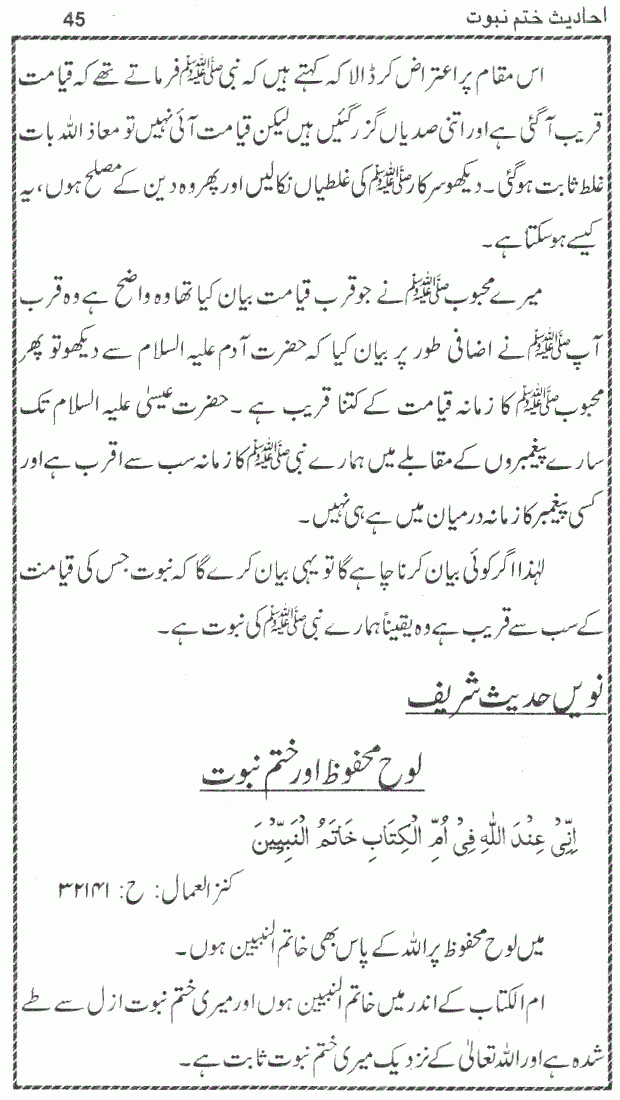 احادیث ختم نبوت 45
اس مقام پر اعتراض کر ڈالا کہ کہتے ہیں کہ نبی ﷺ فرماتے تھے کہ قیامت
قریب آ گئی ہے اور اتنی صدیاں گزر گئیں ہیں لیکن قیامت آئی نہیں تو معاذ اللہ بات
غلط ثابت ہو گئی ۔ دیکھو سرکار ﷺ کی غلطیاں نکالیں اور پھر وہ دین کے مصلح ہوں، یہ
کیسے ہو سکتا ہے ۔
میرے محبوب ﷺ نے جو قرب قیامت بیان کیا تھا وہ واضح ہے وہ قرب
آپ ﷺ نے اضافی طور پر بیان کیا کہ حضرت آدم علیہ السلام سے دیکھو تو پھر
محبوب ﷺ کا زمانہ قیامت کے کتنا قریب ہے ۔ حضرت عیسیٰ علیہ السلام تک
سارے پیغمبروں کے مقابلے میں ہمارے نبی ﷺ کا زمانہ سب سے اقرب ہے اور
کسی پیغمبر کا زمانہ درمیان میں ہے ہی نہیں ۔
لہٰذا اگر کوئی بیان کرنا چاہے گا تو یہی بیان کرے گا کہ نبوت جس کی قیامت
کے سب سے قریب ہے وہ یقیناً ہمارے نبی ﷺ کی نبوت ہے ۔
نویں حدیث شریف
لوح محفوظ اور ختم نبوت
اِنِّیْ عِنْدَ اللّٰهِ فِیْ اُمِّ الْکِتَابِ خَاتَمُ الْنَبِیِّیْنَ
کنز العمال: ح: ۳۲۱۴۱
میں لوح محفوظ پر اللہ کے پاس بھی خاتم النبیین ہوں ۔
ام الکتاب کے اندر میں خاتم النبیین ہوں اور میری ختم نبوت ازل سے طے
شدہ ہے اور اللہ تعالیٰ کے نزدیک میری ختم نبوت ثابت ہے ۔